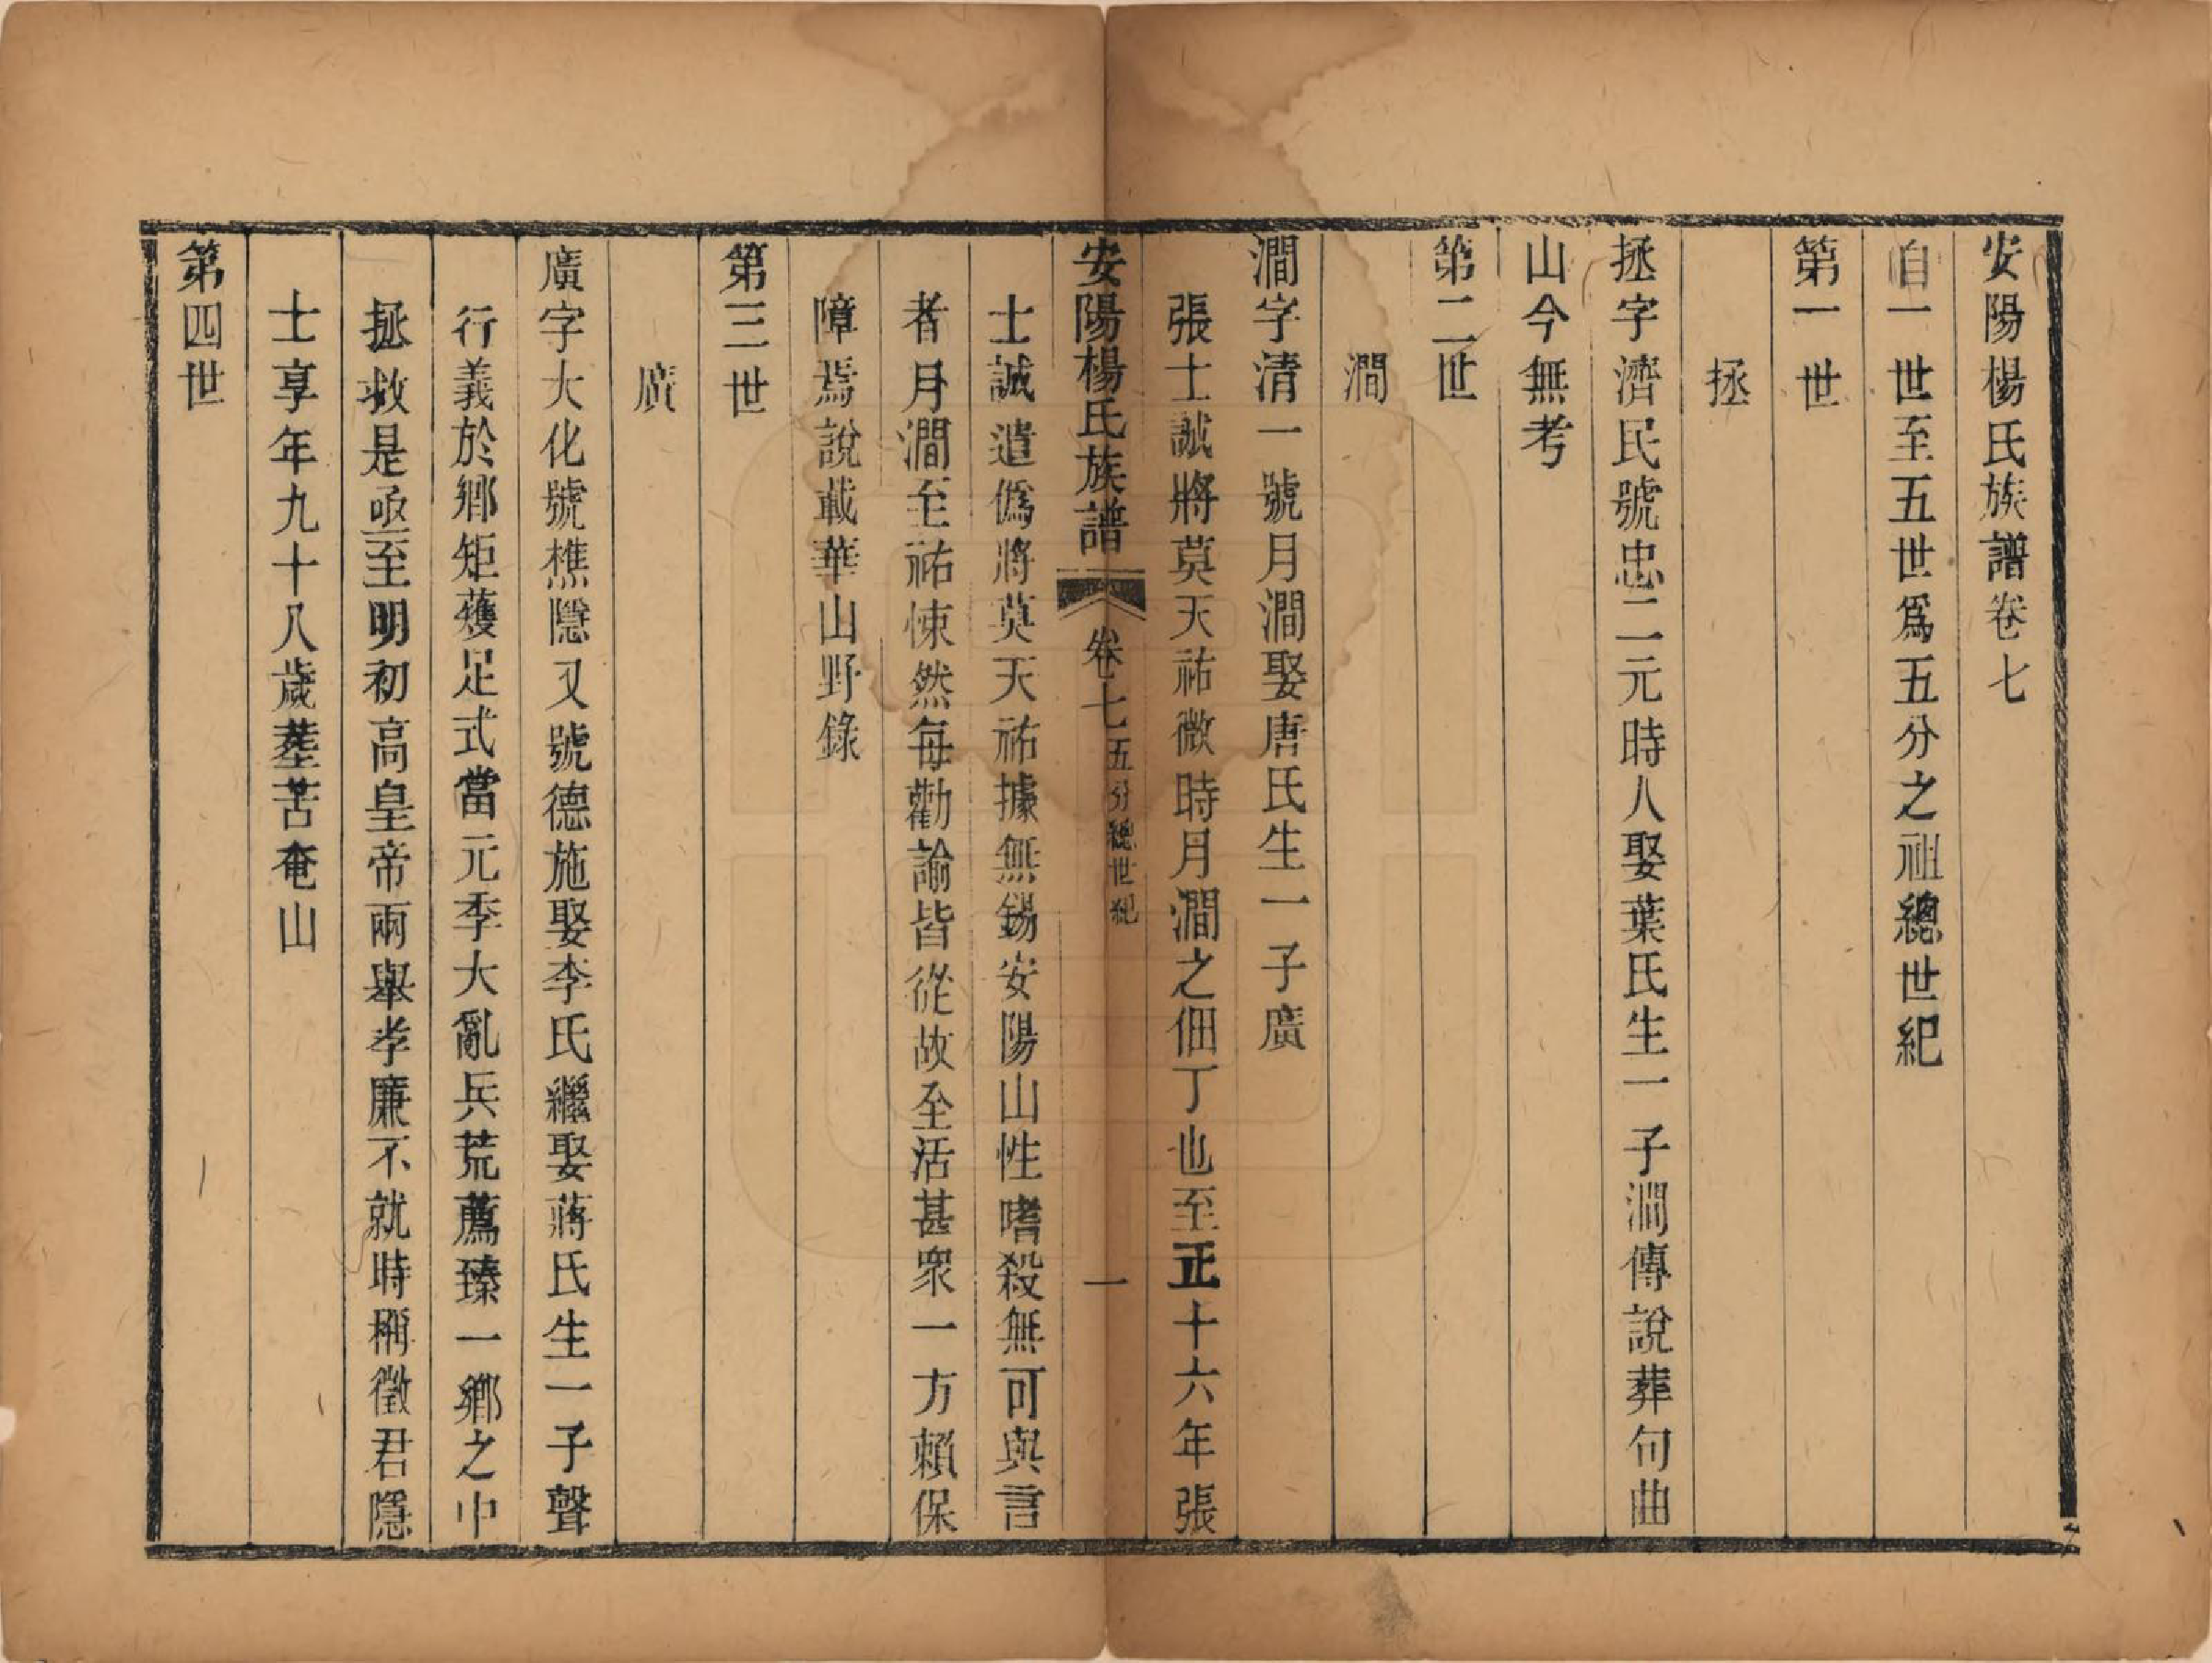 安陽楊氏族譜卷七
自一世至五世爲五分之祖總世紀
第一世
拯
拯字濟民號忠二元時人娶葉氏生一子澗傳說葬句曲
山今無考
第二世
澗
澗字清一號月澗娶唐氏生一子廣
張士誠將莫天祐微時月澗之佃丁也至正十六年張
安陽楊氏族譜 卷七 五分總世紀 一
士誠遣僞將莫天祐據無錫安陽山性嗜殺無可與言
者月澗至祐悚然每勸諭皆從故全活甚眾一方賴保
障焉說載華山野錄
第三世
廣
廣字大化號樵隱又號德施娶李氏繼娶蔣氏生一子聲
行義於鄉矩蒦足式當元季大亂兵荒薦臻一鄉之中
拯救是亟至明初高皇帝兩舉孝廉不就時稱徵君隱
士享年九十八歲塟苦奄山
第四世